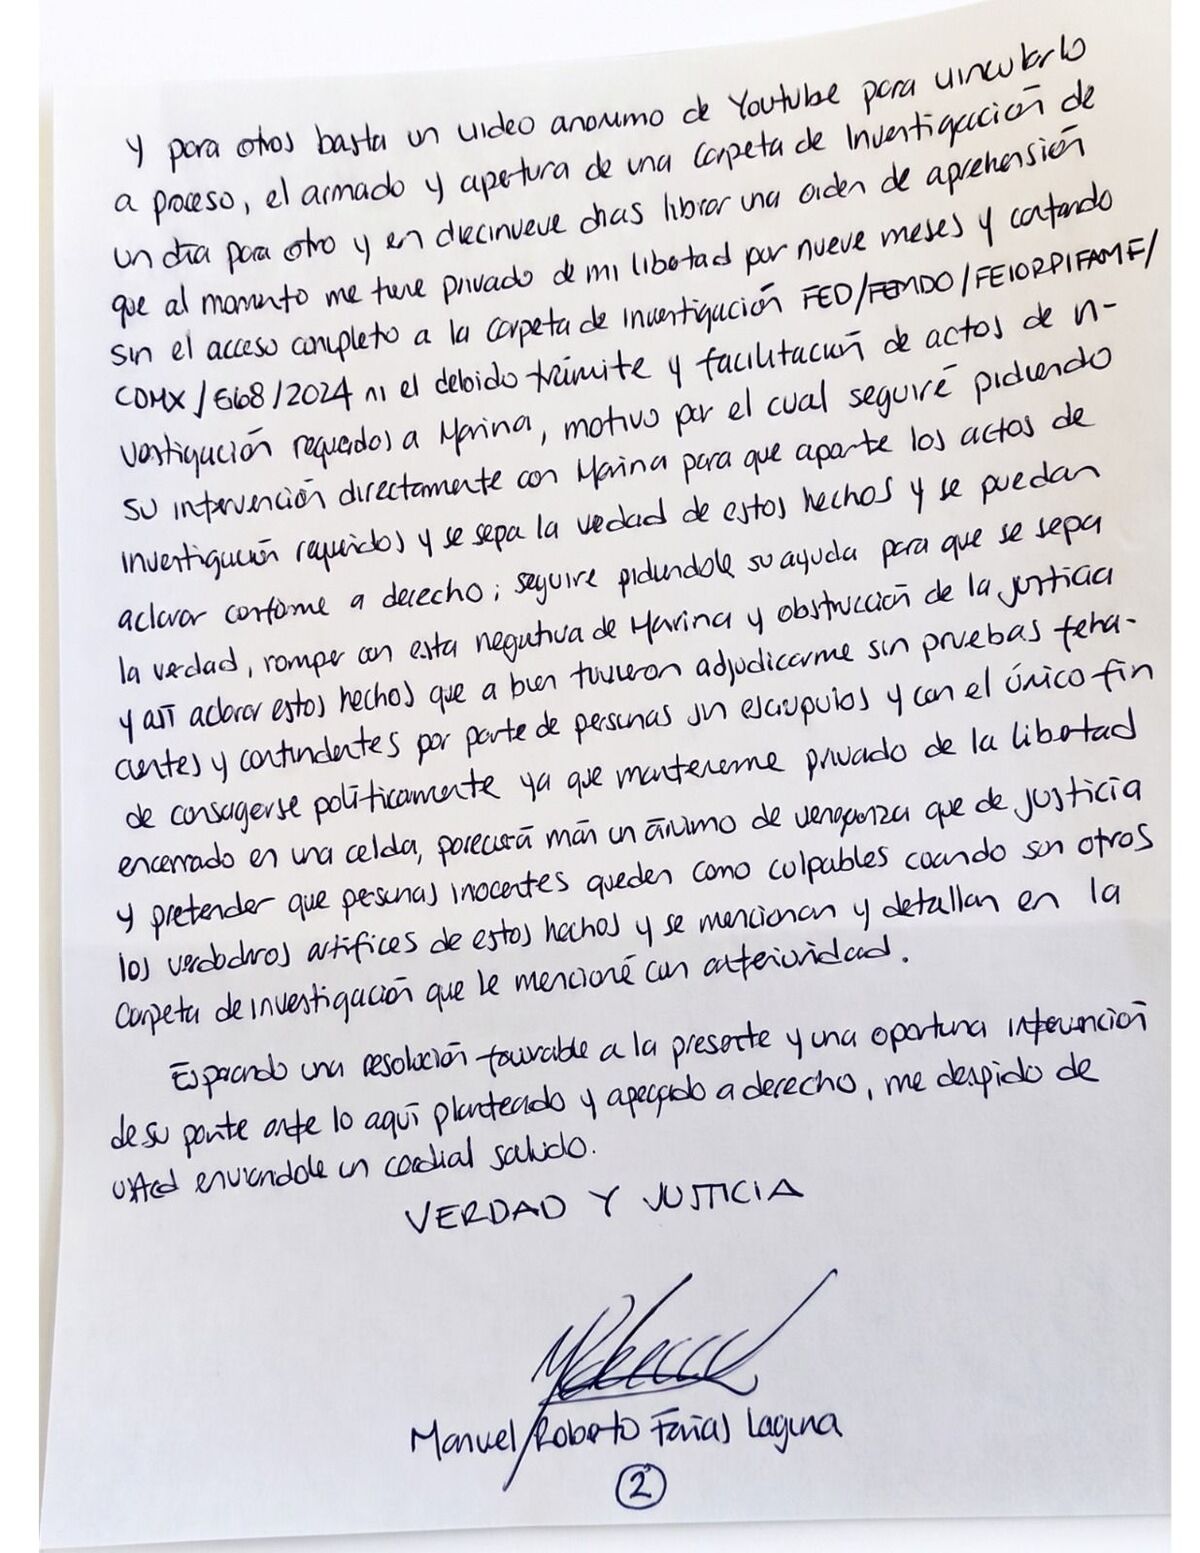 y para otros basta un video anonimo de Youtube para vincularlo
a proceso, el armado y apertura de una Carpeta de Investigación de
un día para otro y en diecinueve dias librar una orden de aprehensión
que al momento me tiene privado de mi libertad por nueve meses y contando
sin el acceso completo a la Carpeta de investigación FED/FEMDO/FEIORPIFAMF/
CDMX/668/2024 ni el debido trámite y facilitación de actos de n-
vestigación requeridos a Marina, motivo por el cual seguiré pidiendo
su intervención directamente con Marina para que aporte los actos de
investigación requeridos y se sepa la vedad de estos hechos y se puedan
aclarar conforme a derecho; seguire pidiendole su ayuda para que se sepa
la verdad, romper con esta negativa de Marina y obstrucción de la justicia
y así aclarar estos hechos que a bien tuvieron adjudicarme sin pruebas feha-
cientes y contundentes por parte de personas sin escrupulos y con el único fin
de consagerse políticamente ya que mantenerme privado de la libertad
encerrado en una celda, pareciera más un ánimo de venganza que de justicia
y pretender que personas inocentes queden como culpables cuando son otros
los verdaderos artifices de estos hechos y se mencionan y detallan en la
Carpeta de investigación que le mencioné con anterioridad.
Esperando una resolución favorable a la presente y una oportuna intervención
de su parte ante lo aquí planteado y apegado a derecho, me despido de
usted enviandole un cordial saludo.
VERDAD Y JUSTICIA
Manuel Roberto Farías Laguna
2